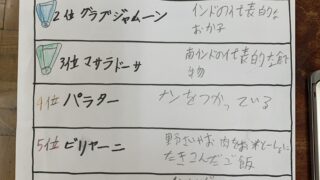 2位 グラブジャムーン
インドの代表的な
おかし
3位 マサラドーサ
南インドの代表的な食べ
物
4位 パラター
ナンをつかっている
5位 ビリヤーニ
野さいやお肉を米といっしょに
たきこんだご飯